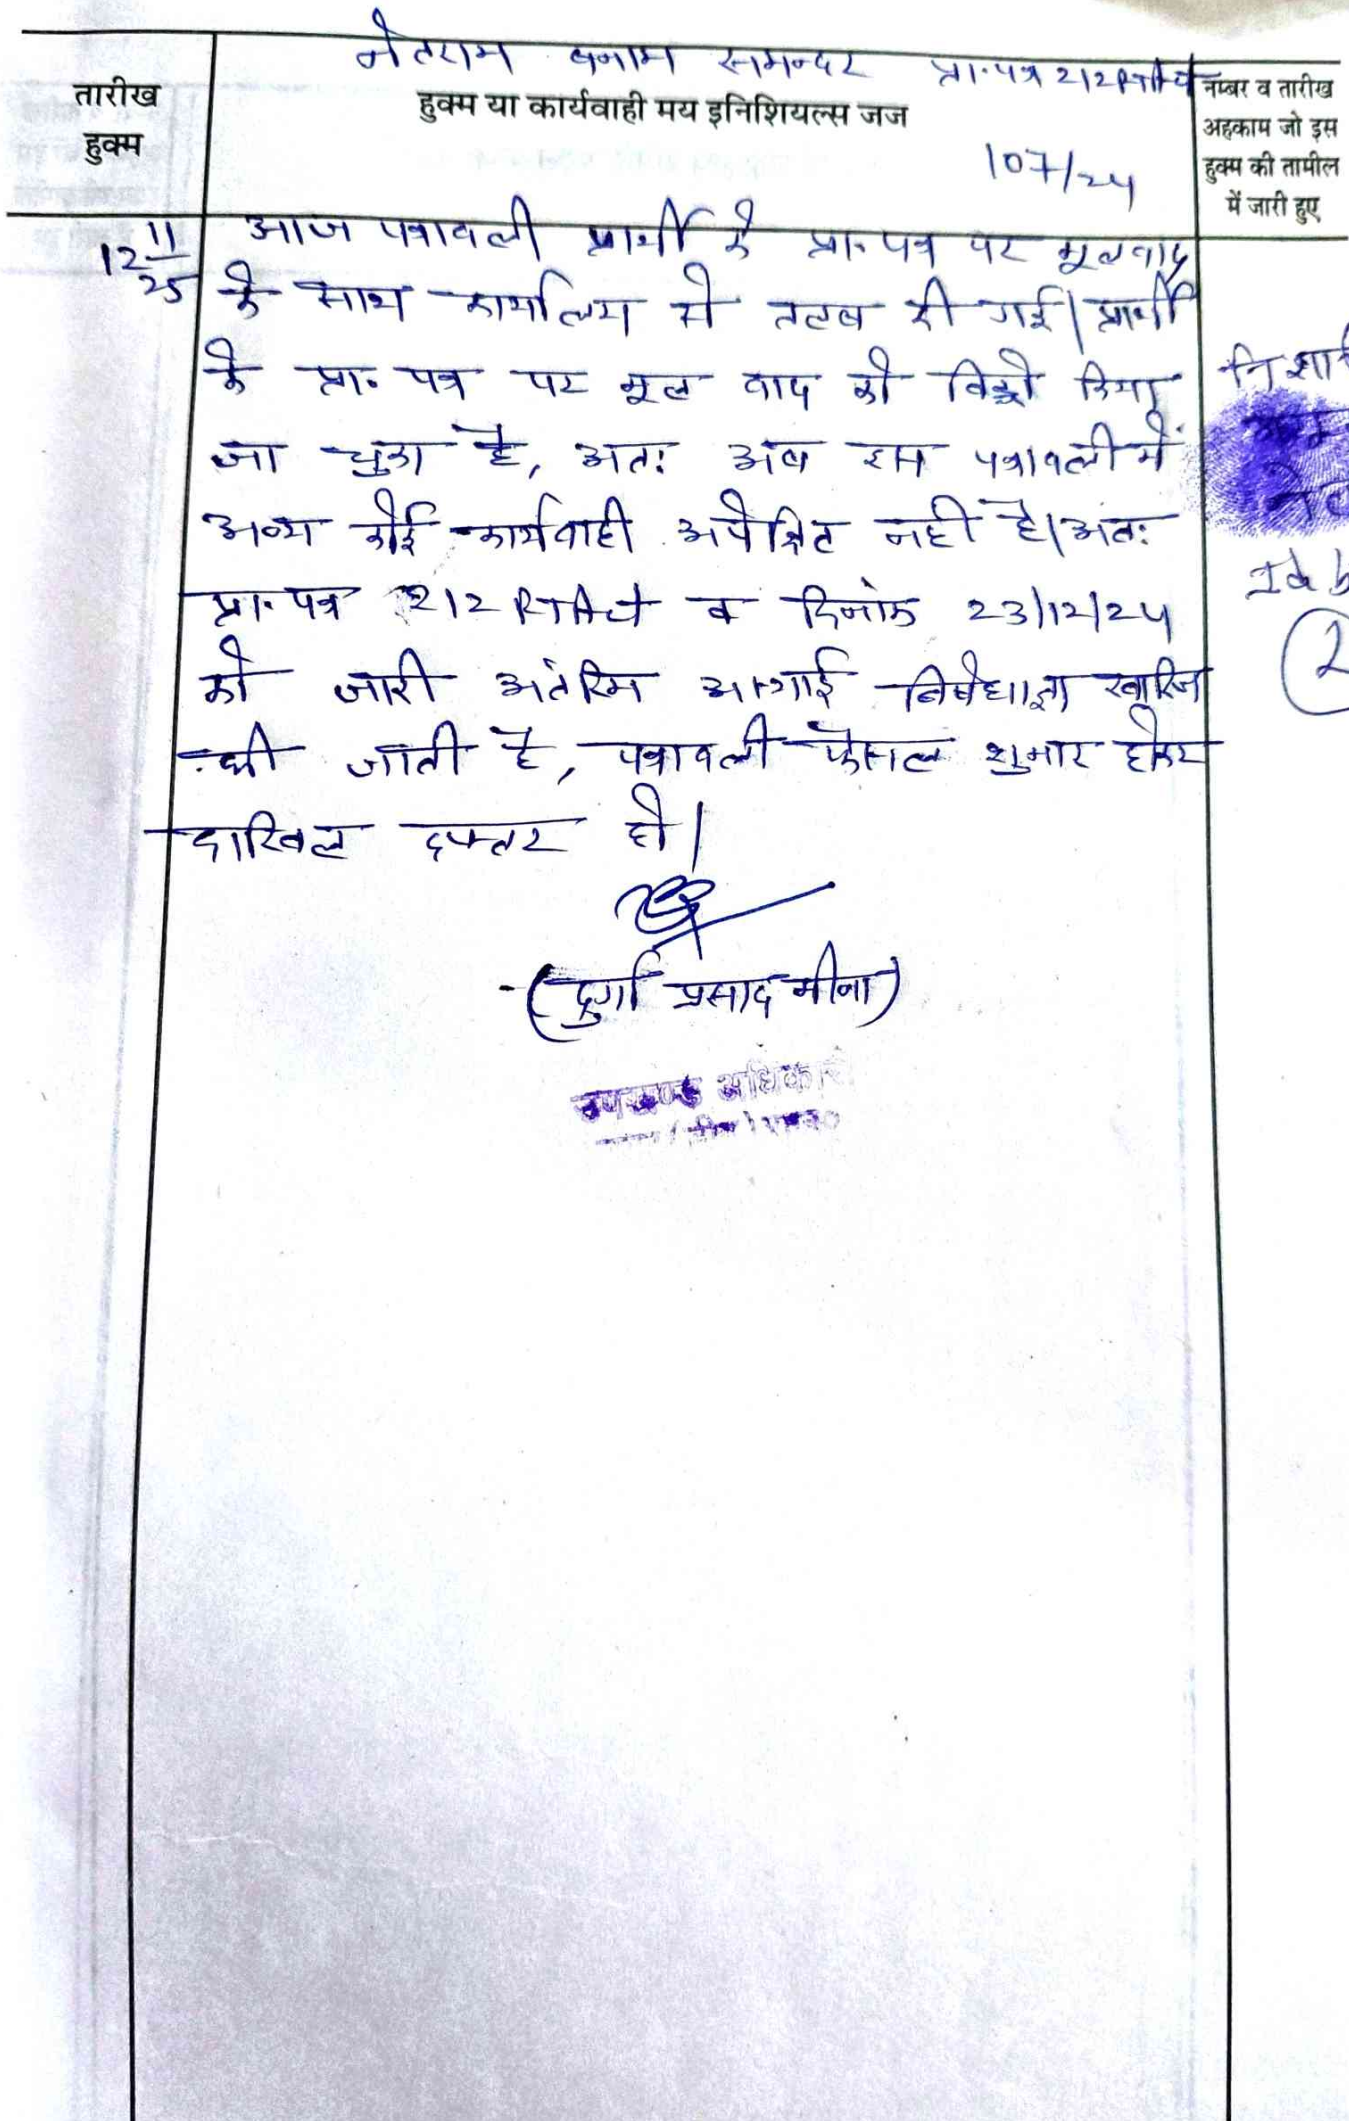 नेतराम बनाम समन्दर प्रा.पत्र 212 RTAct
तारीख
हुक्म
हुक्म या कार्यवाही मय इनिशियल्स जज
107/24
नम्बर व तारीख
अहकाम जो इस
हुक्म की तामील
में जारी हुए
12/11/25
आज पत्रावली प्रार्थी के प्रा. पत्र पर मूलवाद
के साथ कार्यालय में तलब की गई। प्रार्थी
के प्रा. पत्र पर मूल वाद को विड्रो किया
जा चुका है, अतः अब इस पत्रावली में
अन्य कोई कार्यवाही अपेक्षित नही है। अतः
प्रा. पत्र 212 RTAct व दिनांक 23/12/24
को जारी अंतरिम अस्थाई निषेधाज्ञा खारिज
की जाती है, पत्रावली फैसल शुमार होकर
दाखिल दफ्तर हो।
(दुर्गा प्रसाद मीना)
उपखण्ड अधिकारी
निशा
Id b
2